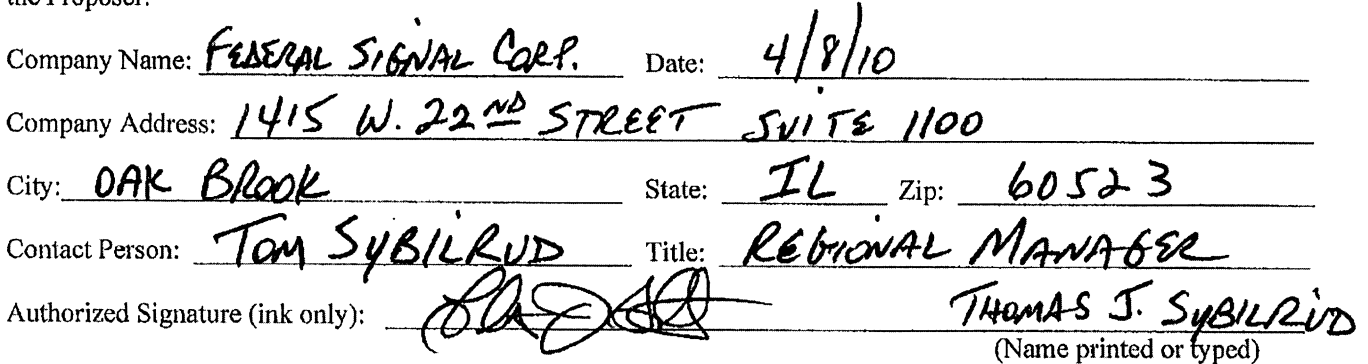 the Proposer.
Company Name: FEDERAL SIGNAL CORP. Date: 4/8/10
Company Address: 1415 W. 22ND STREET SUITE 1100
City: OAK BROOK State: IL Zip: 60523
Contact Person: TOM SYBILRUD Title: REGIONAL MANAGER
Authorized Signature (ink only): THOMAS J. SYBILRUD
(Name printed or typed)